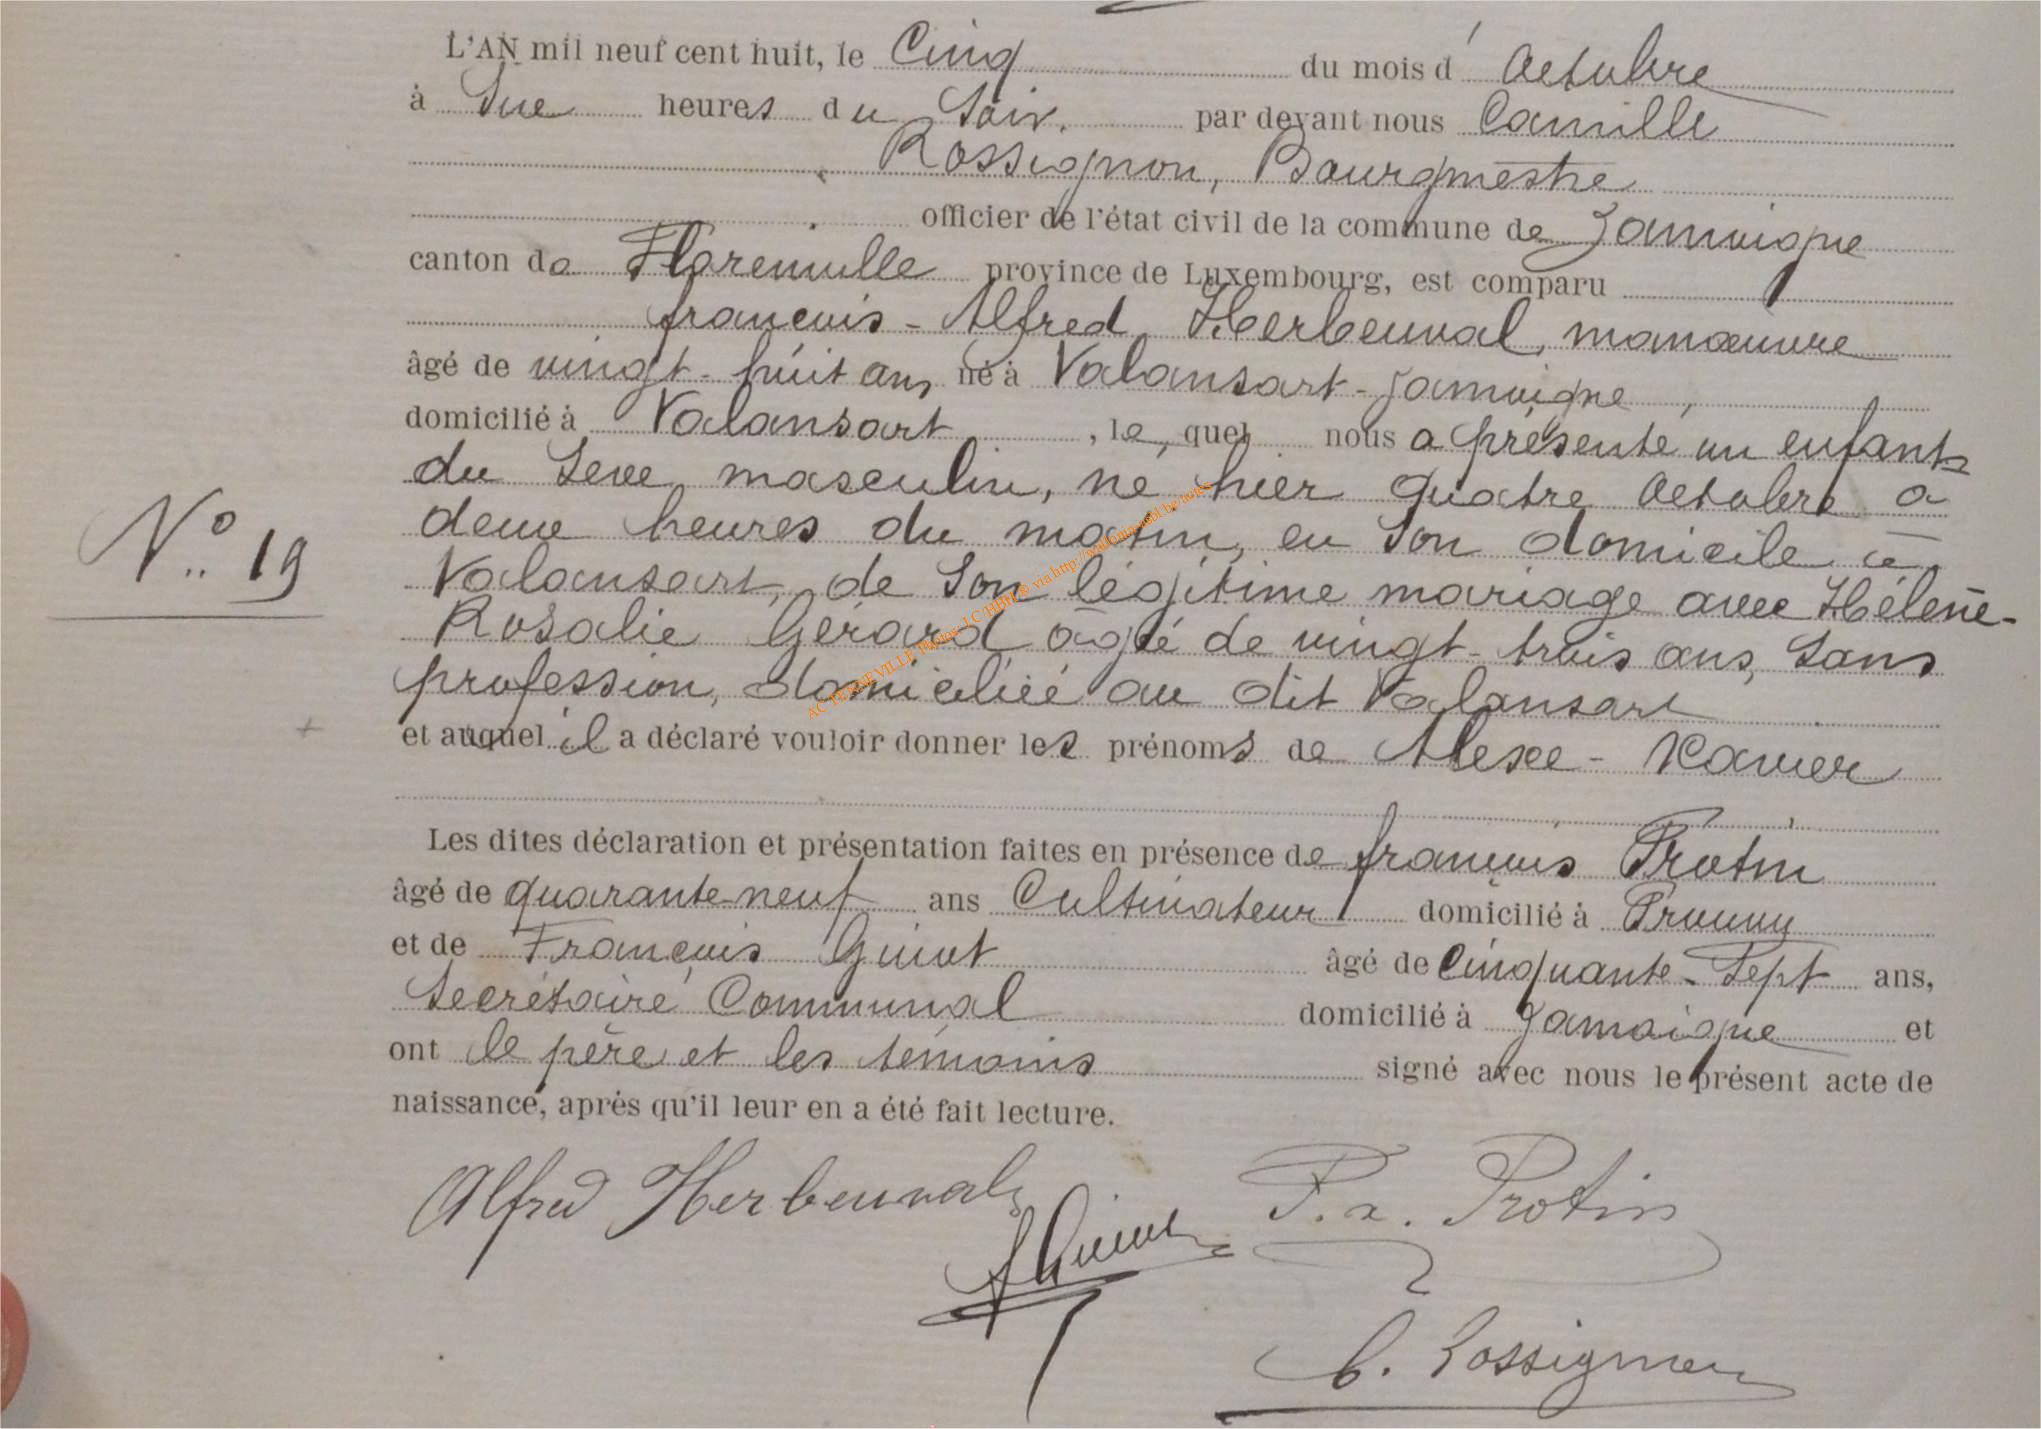 L'AN mil neuf cent huit, le Cinq du mois d'Octobre
à Six heures du Soir, par devant nous Camille
Rossignon, Bourgmestre
officier de l'état civil de la commune de Jamoigne
canton de Florenville province de Luxembourg, est comparu
françois-Alfred Herbeuval, manœuvre
âgé de vingt-huit ans, né à Valansart-Jamoigne,
domicilié à Valansart, lequel nous a présenté un enfant
du Sexe masculin, né hier quatre Octobre à
deux heures du matin, en Son domicile à
Valansart, de Son légitime mariage avec Hélène-
Rosalie Gérard âgée de vingt-trois ans, Sans
profession, domiciliée au dit Valansart
et auquel il a déclaré vouloir donner les prénoms de Alexe-Xavier
Les dites déclaration et présentation faites en présence de françois Protin
âgé de quarante-neuf ans Cultivateur domicilié à Prouvy
et de François Guiot âgé de Cinquante-Sept ans,
Secrétaire Communal domicilié à Jamoigne et
ont le père et les témoins signé avec nous le présent acte de
naissance, après qu'il leur en a été fait lecture.
N° 19
Alfred Herbeuval
F Guiot
F. x. Protin
C. Rossignon